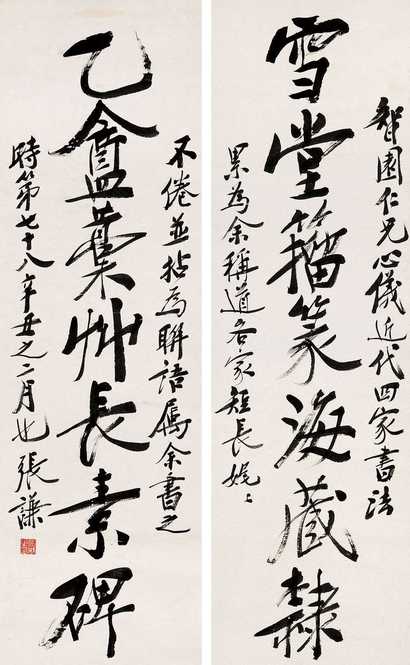 智園仁兄心儀近代四家書法
雪堂籀篆海藏隸
累為余稱道各家短長娓〻
不倦並拈為聯語屬余書之
乙盦藁艸長素碑
時第七十八辛丑之二月也 張謙